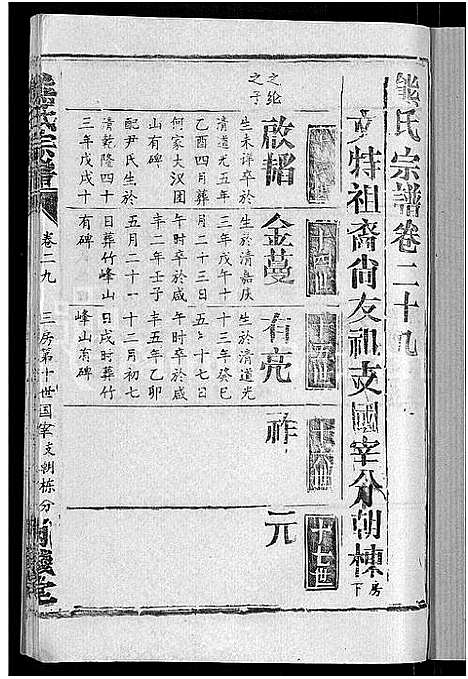 熊氏宗譜卷二十九
文特祖裔尙友祖支國宰分朝棟房下
十四世
十五世
十六世
十七世
之纶
之子
啟韜
生未詳卒於
清道光五年
乙酉四月葬
何家大汉团
山有碑
配尹氏生於
清乾隆四十
三年戊戌十
金蔓
生於清嘉庆
三年戊午十
月二十三日
午时卒於咸
丰二年壬子
五月二十一
日葬竹峰山
有碑
有亮
生於清道光
十三年癸巳
五月十七日
午时卒於咸
丰五年乙卯
十二月初七
日戌时葬竹
峰山有碑
祚
元
熊氏宗譜
卷二九
三房第十世国宰支朝栋分
堂